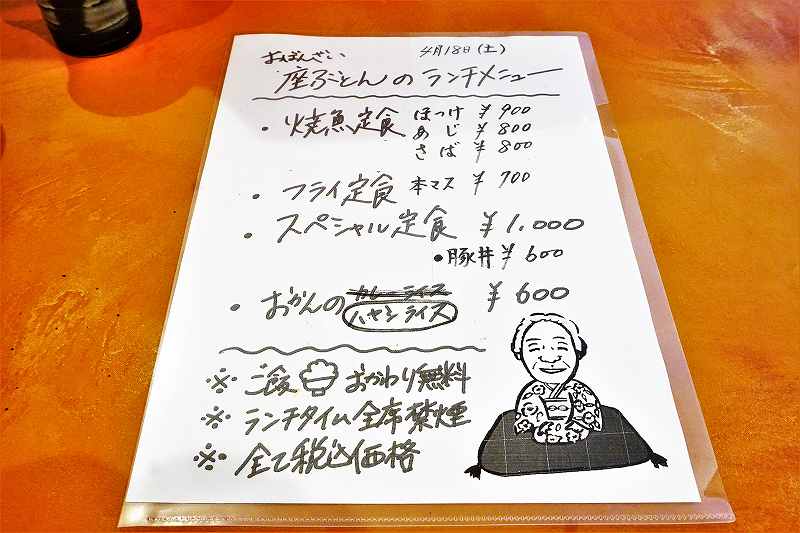 おばんざい 4月18日(土)
座ぶとんのランチメニュー
・焼魚定食 ほっけ ¥900
あじ ¥800
さば ¥800
・フライ定食 本マス ¥700
・スペシャル定食 ¥1.000
・豚丼 ¥600
・おかんの カレーライス ¥600
ハヤシライス
※ ご飯 おかわり無料
※ ランチタイム全席禁煙
※ 全て税込価格